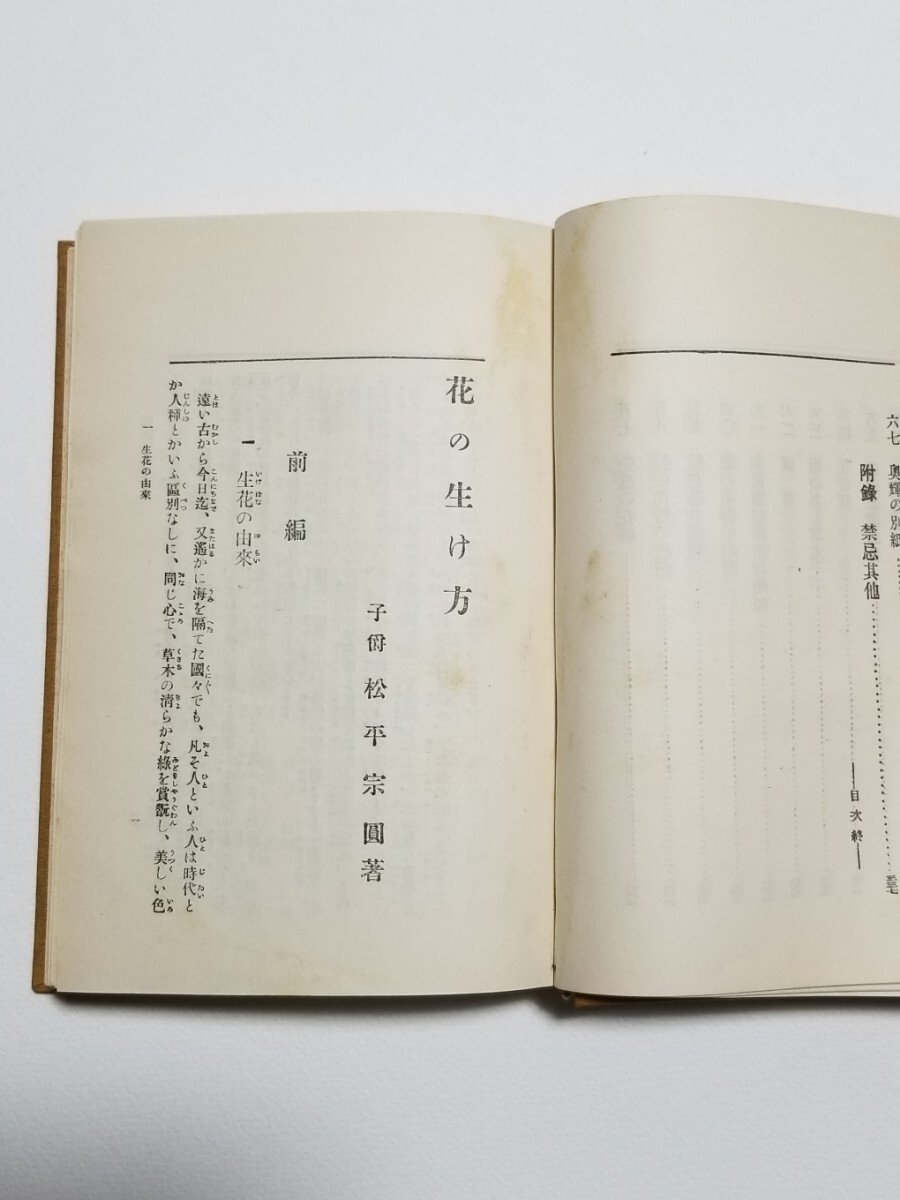 六七 奥輝の別紙
附錄 禁忌其他
―目次終―
花の生け方
子爵 松平宗圓著
前編
一 生花の由來
遠い古から今日迄、又遙かに海を隔てた國々でも、凡そ人といふ人は時代と
か人種とかいふ區別なしに、同じ心で、草木の淸らかな綠を賞翫し、美しい色
一 生花の由來